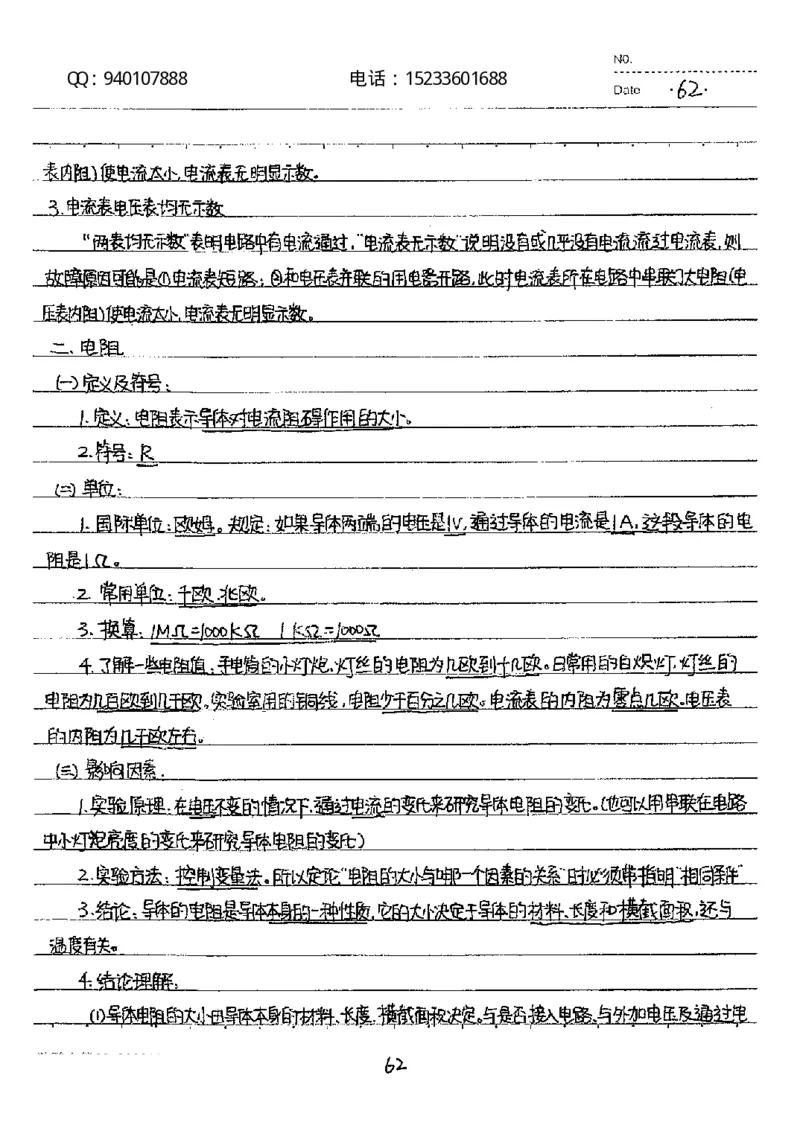 NO.
QQ：940107888 电话：15233601688
Date ·62·
表内阻)使电流太小,电流表无明显示数。
3.电流表电压表均无示数
"两表均无示数"表明电路中有电流通过,"电流表无示数"说明没有或几乎没有电流流过电流表,则
故障原因可能是①电流表短路；②和电压表并联的用电器开路,此时电流表所在电路中串联了大电阻(电
压表内阻)使电流太小,电流表无明显示数。
二、电阻
(一)定义及符号：
1.定义：电阻表示导体对电流阻碍作用的大小。
2.符号：R
(二)单位：
1.国际单位：欧姆。规定：如果导体两端的电压是1V,通过导体的电流是1A,这段导体的电
阻是1Ω。
2.常用单位：千欧、兆欧。
3.换算：1MΩ=1000KΩ 1KΩ=1000Ω
4.了解一些电阻值：手电筒的小灯炮,灯丝的电阻为几欧到十几欧。日常用的白炽灯,灯丝的
电阻为几百欧到几千欧。实验室用的铜线,电阻少于百分之几欧。电流表的内阻为零点几欧。电压表
的内阻为几千欧左右。
(三)影响因素：
1.实验原理：在电压不变的情况下,通过电流的变化来研究导体电阻的变化。(也可以用串联在电路
中小灯泡亮度的变化来研究导体电阻的变化)
2.实验方法：控制变量法。所以定论"电阻的大小与哪一个因素的关系"时必须带指明"相同条件"
3.结论：导体的电阻是导体本身的一种性质,它的大小决定于导体的材料、长度和横截面积,还与
温度有关。
4.结论理解：
(1)导体电阻的大小由导体本身的材料、长度,横截面积决定。与是否接入电路、与外加电压及通过电
62